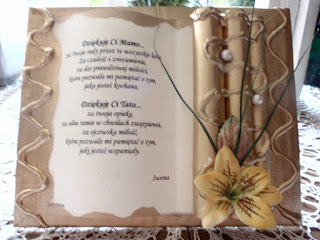 Dziękuję Ci Mamo...
za Twoje rady przez te wszystkie lata,
Za czułość i zrozumienie,
za dar prawdziwej miłości,
która pozwala mi pamiętać o tym,
jaka jesteś kochana.
Dziękuję Ci Tato...
za twoja opiekę,
za silne ramie w chwilach zwątpienia,
za ojcowską miłość,
która pozwala mi pamiętać o tym,
jaki jesteś wspaniały.
Iwona